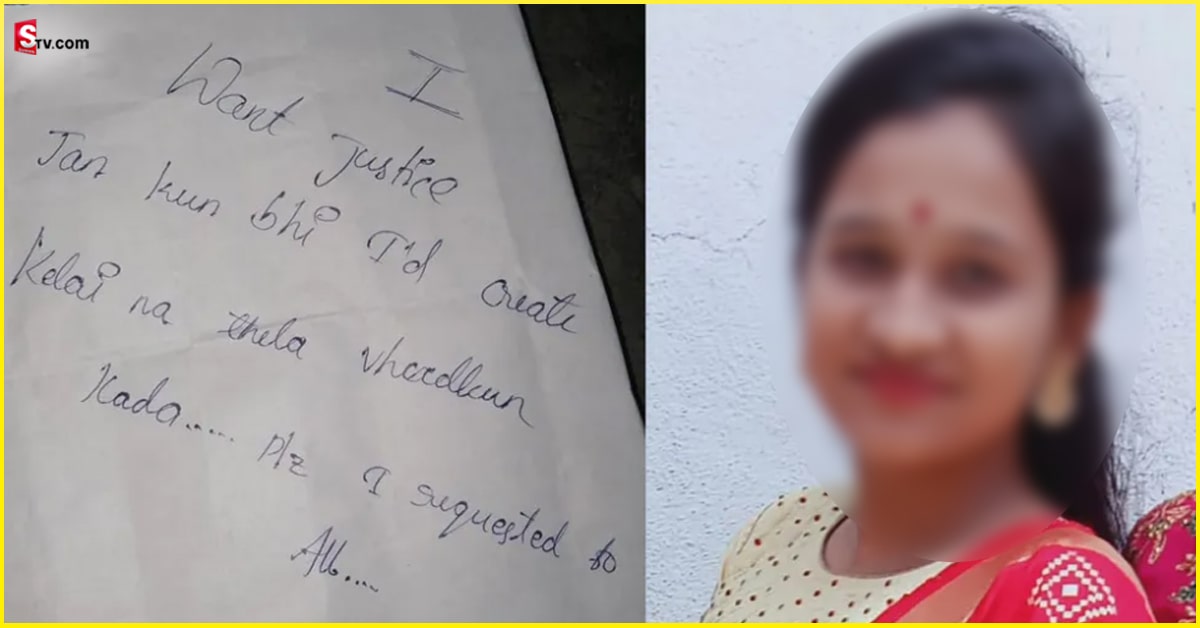 STV.com
I
Want justice
Jan kun bhi I'd create
Kelai na thela vheedkun
Kada..... Plz I suquested to
All....